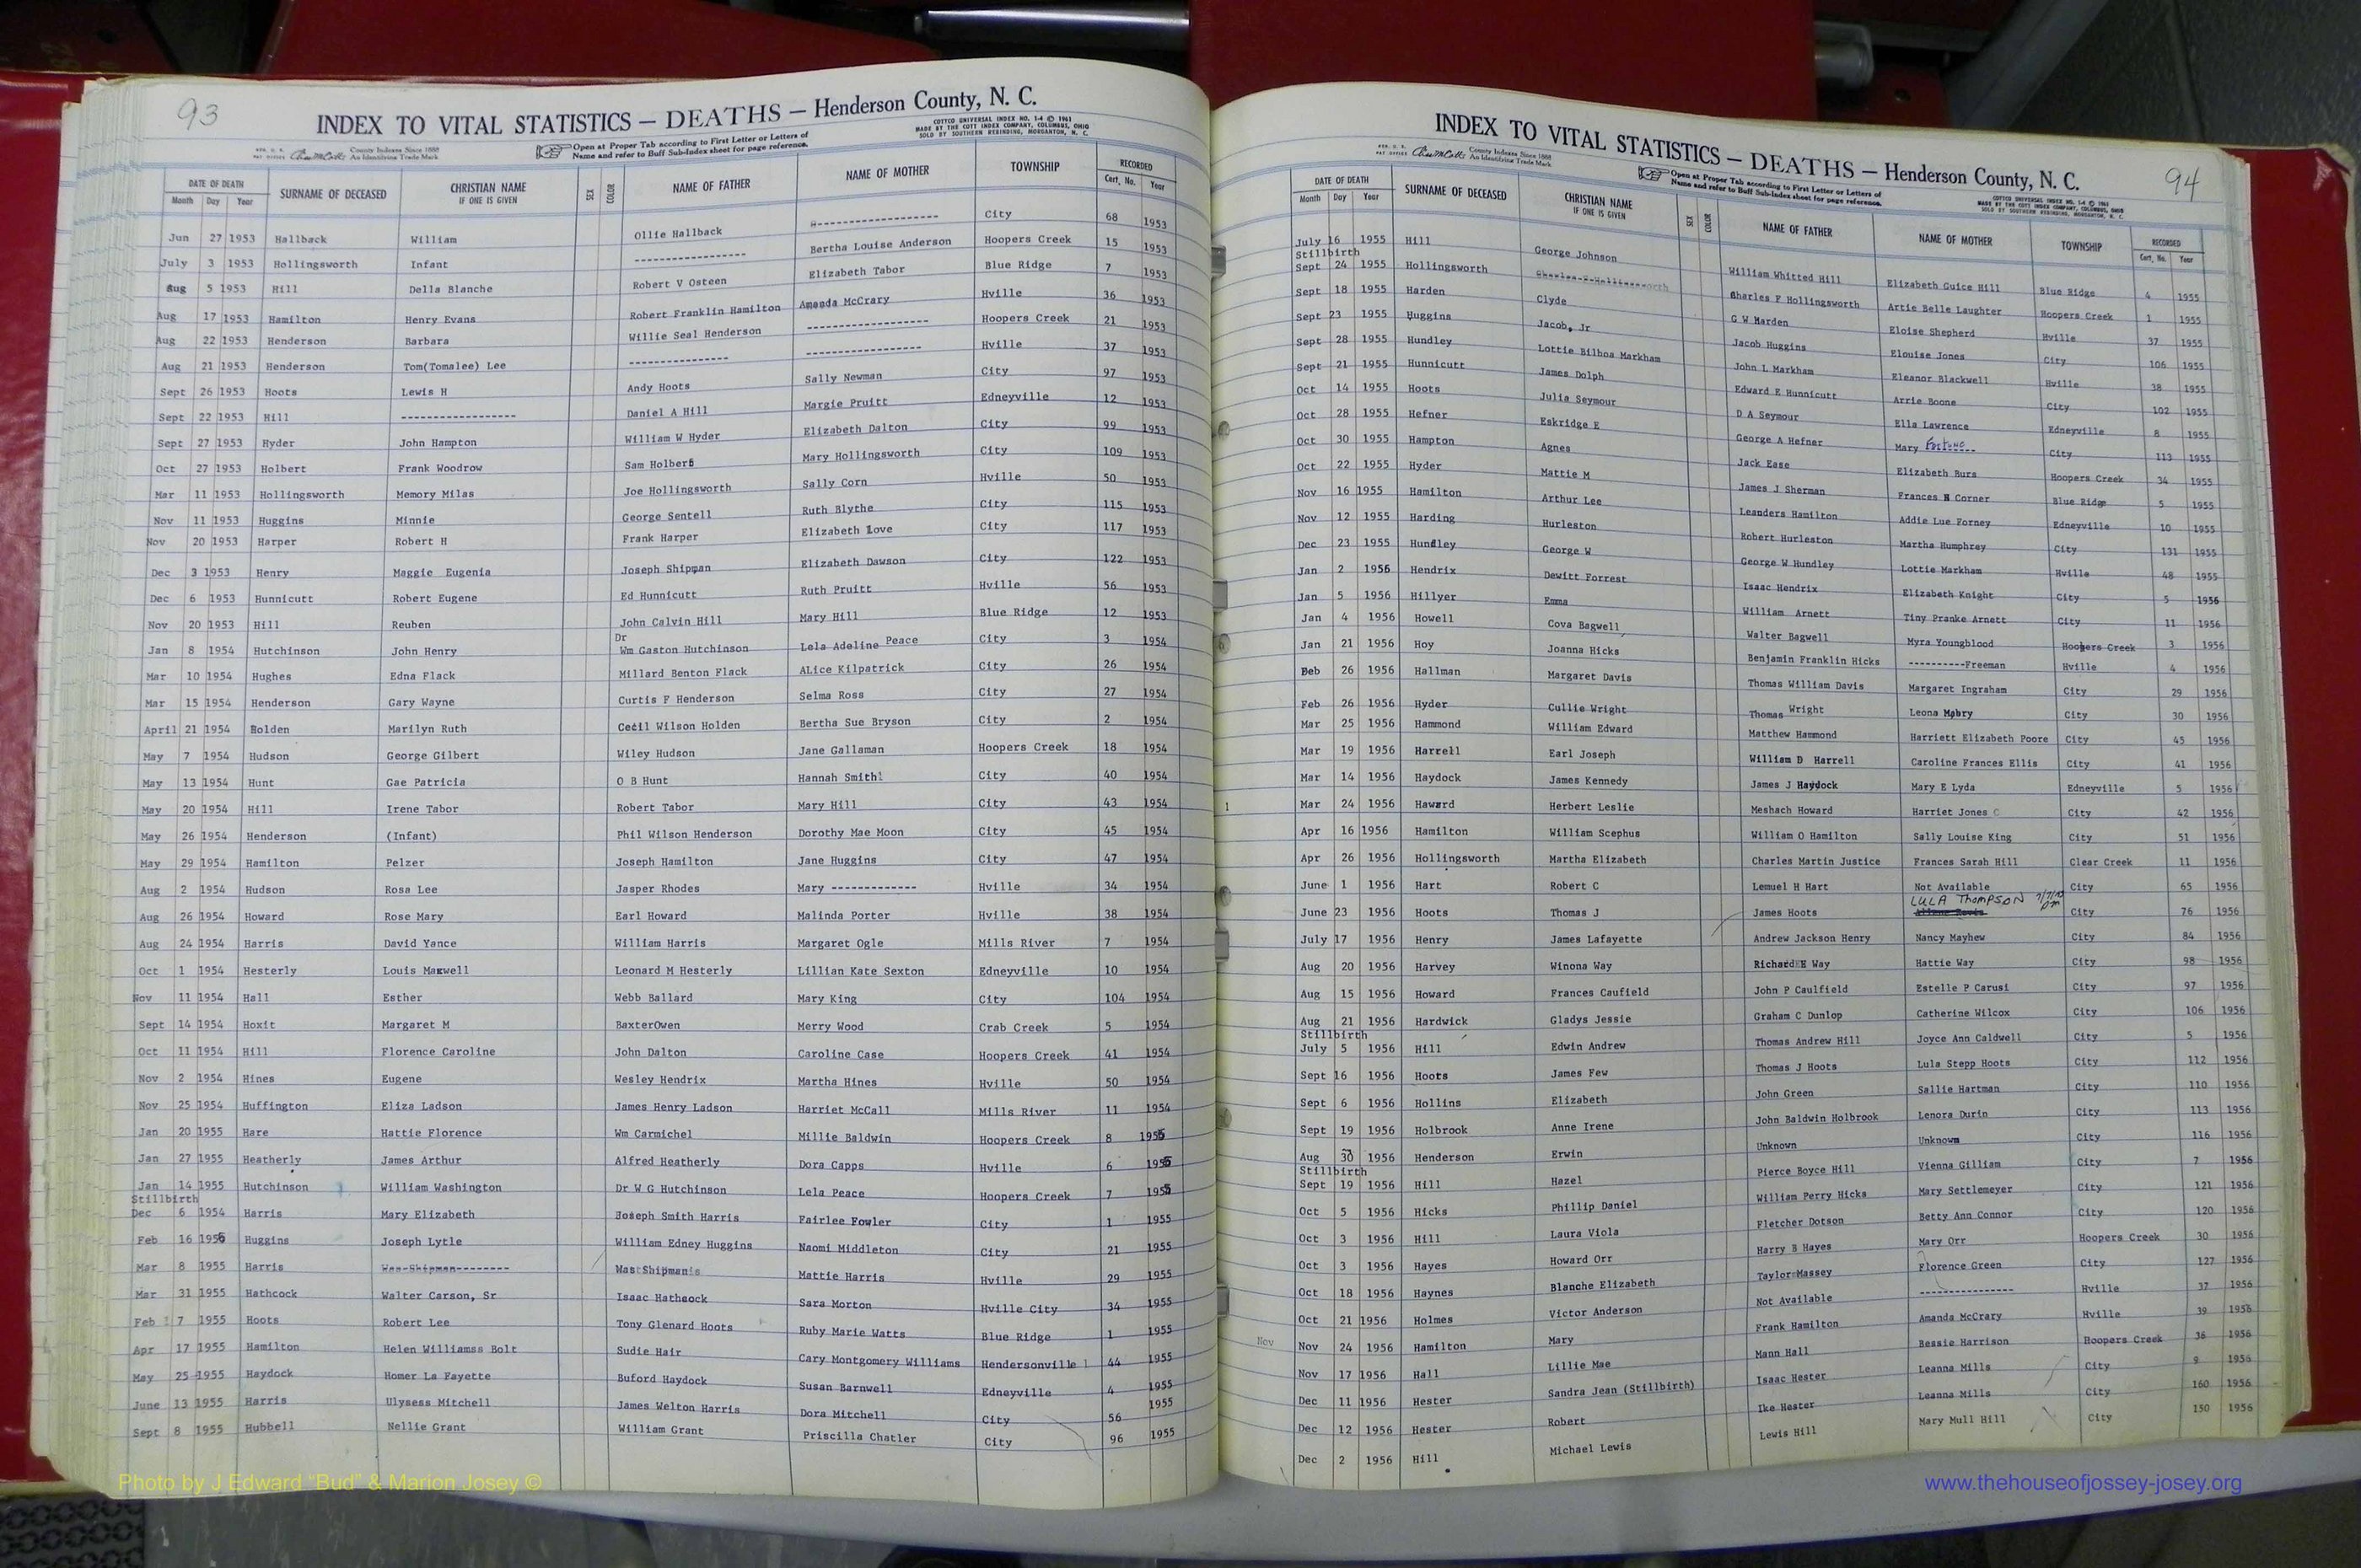 93
INDEX TO VITAL STATISTICS — DEATHS — Henderson County, N. C.
COTTCO UNIVERSAL INDEX NO. 1-4 © 1961
MADE BY THE COTT INDEX COMPANY, COLUMBUS, OHIO
SOLD BY SOUTHERN REBINDING, MORGANTON, N. C.
County Indexes Since 1888
An Identifying Trade Mark
Open at Proper Tab according to First Letter or Letters of
Name and refer to Buff Sub-Index sheet for page reference.
DATE OF DEATH SURNAME OF DECEASED CHRISTIAN NAME IF ONE IS GIVEN SEX COLOR NAME OF FATHER NAME OF MOTHER TOWNSHIP RECORDED
Month Day Year Cert. No. Year
Jun 27 1953 Hallback William Ollie Hallback ------------------- City 68 1953
July 3 1953 Hollingsworth Infant ------------------ Bertha Louise Anderson Hoopers Creek 15 1953
Aug 5 1953 Hill Della Blanche Robert V Osteen Elizabeth Tabor Blue Ridge 7 1953
Aug 17 1953 Hamilton Henry Evans Robert Franklin Hamilton Amanda McCrary Hville 36 1953
Aug 22 1953 Henderson Barbara Willie Seal Henderson ------------------- Hoopers Creek 21 1953
Aug 21 1953 Henderson Tom(Tomalee) Lee ---------------- ------------------ Hville 37 1953
Sept 26 1953 Hoots Lewis H Andy Hoots Sally Newman City 97 1953
Sept 22 1953 Hill ------------------ Daniel A Hill Margie Pruitt Edneyville 12 1953
Sept 27 1953 Hyder John Hampton William W Hyder Elizabeth Dalton City 99 1953
Oct 27 1953 Holbert Frank Woodrow Sam Holbert Mary Hollingsworth City 109 1953
Mar 11 1953 Hollingsworth Memory Milas Joe Hollingsworth Sally Corn Hville 50 1953
Nov 11 1953 Huggins Minnie George Sentell Ruth Blythe City 115 1953
Nov 20 1953 Harper Robert H Frank Harper Elizabeth Love City 117 1953
Dec 3 1953 Henry Maggie Eugenia Joseph Shipman Elizabeth Dawson City 122 1953
Dec 6 1953 Hunnicutt Robert Eugene Ed Hunnicutt Ruth Pruitt Hville 56 1953
Nov 20 1953 Hill Reuben John Calvin Hill Mary Hill Blue Ridge 12 1953
Jan 8 1954 Hutchinson John Henry Dr Wm Gaston Hutchinson Lela Adeline Peace City 3 1954
Mar 10 1954 Hughes Edna Flack Millard Benton Flack ALice Kilpatrick City 26 1954
Mar 15 1954 Henderson Gary Wayne Curtis F Henderson Selma Ross City 27 1954
April 21 1954 Holden Marilyn Ruth Cecil Wilson Holden Bertha Sue Bryson City 2 1954
May 7 1954 Hudson George Gilbert Wiley Hudson Jane Gallaman Hoopers Creek 18 1954
May 13 1954 Hunt Gae Patricia O B Hunt Hannah Smith City 40 1954
May 20 1954 Hill Irene Tabor Robert Tabor Mary Hill City 43 1954
May 26 1954 Henderson (Infant) Phil Wilson Henderson Dorothy Mae Moon City 45 1954
May 29 1954 Hamilton Pelzer Joseph Hamilton Jane Huggins City 47 1954
Aug 2 1954 Hudson Rosa Lee Jasper Rhodes Mary ------------- Hville 34 1954
Aug 26 1954 Howard Rose Mary Earl Howard Malinda Porter Hville 38 1954
Aug 24 1954 Harris David Yance William Harris Margaret Ogle Mills River 7 1954
Oct 1 1954 Hesterly Louis Maxwell Leonard M Hesterly Lillian Kate Sexton Edneyville 10 1954
Nov 11 1954 Hall Esther Webb Ballard Mary King City 104 1954
Sept 14 1954 Hoxit Margaret M BaxterOwen Merry Wood Crab Creek 5 1954
Oct 11 1954 Hill Florence Caroline John Dalton Caroline Case Hoopers Creek 41 1954
Nov 2 1954 Hines Eugene Wesley Hendrix Martha Hines Hville 50 1954
Nov 25 1954 Huffington Eliza Ladson James Henry Ladson Harriet McCall Mills River 11 1954
Jan 20 1955 Hare Hattie Florence Wm Carmichel Millie Baldwin Hoopers Creek 8 1955
Jan 27 1955 Heatherly James Arthur Alfred Heatherly Dora Capps Hville 6 1955
Jan 14 1955 Hutchinson William Washington Dr W G Hutchinson Lela Peace Hoopers Creek 7 1955
Stillbirth
Dec 6 1954 Harris Mary Elizabeth Joseph Smith Harris Fairlee Fowler City 1 1955
Feb 16 1955 Huggins Joseph Lytle William Edney Huggins Naomi Middleton City 21 1955
Mar 8 1955 Harris Was Shipman-------- Was Shipman Mattie Harris Hville 29 1955
Mar 31 1955 Hathcock Walter Carson, Sr Isaac Hathcock Sara Morton Hville City 34 1955
Feb 7 1955 Hoots Robert Lee Tony Glenard Hoots Ruby Marie Watts Blue Ridge 1 1955
Apr 17 1955 Hamilton Helen Williamss Bolt Sudie Hair Cary Montgomery Williams Hendersonville 44 1955
May 25 1955 Haydock Homer La Fayette Buford Haydock Susan Barnwell Edneyville 4 1955
June 13 1955 Harris Ulysess Mitchell James Welton Harris Dora Mitchell City 56 1955
Sept 8 1955 Hubbell Nellie Grant William Grant Priscilla Chatler City 96 1955
Photo by J Edward “Bud” & Marion Josey ©
INDEX TO VITAL STATISTICS — DEATHS — Henderson County, N. C.
94
County Indexes Since 1888
An Identifying Trade Mark
Open at Proper Tab according to First Letter or Letters of
Name and refer to Buff Sub-Index sheet for page reference.
COTTCO UNIVERSAL INDEX NO. 1-4 © 1961
MADE BY THE COTT INDEX COMPANY, COLUMBUS, OHIO
SOLD BY SOUTHERN REBINDING, MORGANTON, N. C.
DATE OF DEATH SURNAME OF DECEASED CHRISTIAN NAME IF ONE IS GIVEN SEX COLOR NAME OF FATHER NAME OF MOTHER TOWNSHIP RECORDED
Month Day Year Cert. No. Year
July 16 1955 Hill George Johnson William Whitted Hill Elizabeth Guice Hill Blue Ridge 4 1955
Stillbirth
Sept 24 1955 Hollingsworth Charles F Hollingsworth Artie Belle Laughter Hoopers Creek 1 1955
Sept 18 1955 Harden Clyde G W Harden Eloise Shepherd Hville 37 1955
Sept 23 1955 Huggins Jacob, Jr Jacob Huggins Elouise Jones City 106 1955
Sept 28 1955 Hundley Lottie Bilboa Markham John L Markham Eleanor Blackwell Hville 38 1955
Sept 21 1955 Hunnicutt James Dolph Edward E Hunnicutt Arrie Boone City 102 1955
Oct 14 1955 Hoots Julia Seymour D A Seymour Ella Lawrence Edneyville 8 1955
Oct 28 1955 Hefner Eskridge E George A Hefner Mary Fortune City 113 1955
Oct 30 1955 Hampton Agnes Jack Ease Elizabeth Burs Hoopers Creek 34 1955
Oct 22 1955 Hyder Mattie M James J Sherman Frances H Corner Blue Ridge 5 1955
Nov 16 1955 Hamilton Arthur Lee Leanders Hamilton Addie Lue Forney Edneyville 10 1955
Nov 12 1955 Harding Hurleston Robert Hurleston Martha Humphrey City 131 1955
Dec 23 1955 Hundley George W George W Hundley Lottie Markham Hville 48 1955
Jan 2 1956 Hendrix Dewitt Forrest Isaac Hendrix Elizabeth Knight City 5 1956
Jan 5 1956 Hillyer Emma William Arnett Tiny Pranke Arnett City 11 1956
Jan 4 1956 Howell Cova Bagwell Walter Bagwell Myra Youngblood Hoopers Creek 3 1956
Jan 21 1956 Hoy Joanna Hicks Benjamin Franklin Hicks ----------Freeman Hville 4 1956
Feb 26 1956 Hallman Margaret Davis Thomas William Davis Margaret Ingraham City 29 1956
Feb 26 1956 Hyder Cullie Wright Thomas Wright Leona Mabry City 30 1956
Mar 25 1956 Hammond William Edward Matthew Hammond Harriett Elizabeth Poore City 45 1956
Mar 19 1956 Harrell Earl Joseph William D Harrell Caroline Frances Ellis City 41 1956
Mar 14 1956 Haydock James Kennedy James J Haydock Mary E Lyda Edneyville 5 1956
Mar 24 1956 Haward Herbert Leslie Meshach Howard Harriet Jones City 42 1956
Apr 16 1956 Hamilton William Scephus William O Hamilton Sally Louise King City 51 1956
Apr 26 1956 Hollingsworth Martha Elizabeth Charles Martin Justice Frances Sarah Hill Clear Creek 11 1956
June 1 1956 Hart Robert C Lemuel H Hart Not Available City 65 1956
June 23 1956 Hoots Thomas J James Hoots LULA THOMPSON City 76 1956
July 17 1956 Henry James Lafayette Andrew Jackson Henry Nancy Mayhew City 84 1956
Aug 20 1956 Harvey Winona Way Richard E Way Hattie Way City 98 1956
Aug 15 1956 Howard Frances Caufield John P Caulfield Estelle P Carusi City 97 1956
Aug 21 1956 Hardwick Gladys Jessie Graham C Dunlop Catherine Wilcox City 106 1956
Stillbirth
July 5 1956 Hill Edwin Andrew Thomas Andrew Hill Joyce Ann Caldwell City 5 1956
Sept 16 1956 Hoots James Few Thomas J Hoots Lula Stepp Hoots City 112 1956
Sept 6 1956 Hollins Elizabeth John Green Sallie Hartman City 110 1956
Sept 19 1956 Holbrook Anne Irene John Baldwin Holbrook Lenora Durin City 113 1956
Aug 30 1956 Henderson Erwin Unknown Unknown City 116 1956
Stillbirth
Sept 19 1956 Hill Hazel Pierce Boyce Hill Vienna Gilliam City 7 1956
Oct 5 1956 Hicks Phillip Daniel William Perry Hicks Mary Settlemeyer City 121 1956
Oct 3 1956 Hill Laura Viola Fletcher Dotson Betty Ann Connor City 120 1956
Oct 3 1956 Hayes Howard Orr Harry B Hayes Mary Orr Hoopers Creek 30 1956
Oct 18 1956 Haynes Blanche Elizabeth Taylor Massey Florence Green City 127 1956
Oct 21 1956 Holmes Victor Anderson Not Available ---------------- Hville 37 1956
Nov Nov 24 1956 Hamilton Mary Frank Hamilton Amanda McCrary Hville 39 1956
Nov 17 1956 Hall Lillie Mae Mann Hall Bessie Harrison Hoopers Creek 36 1956
Dec 11 1956 Hester Sandra Jean (Stillbirth) Isaac Hester Leanna Mills City 9 1956
Dec 12 1956 Hester Robert Ike Hester Leanna Mills City 160 1956
Dec 2 1956 Hill Michael Lewis Lewis Hill Mary Mull Hill City 150 1956
www.thehouseofjossey-josey.org